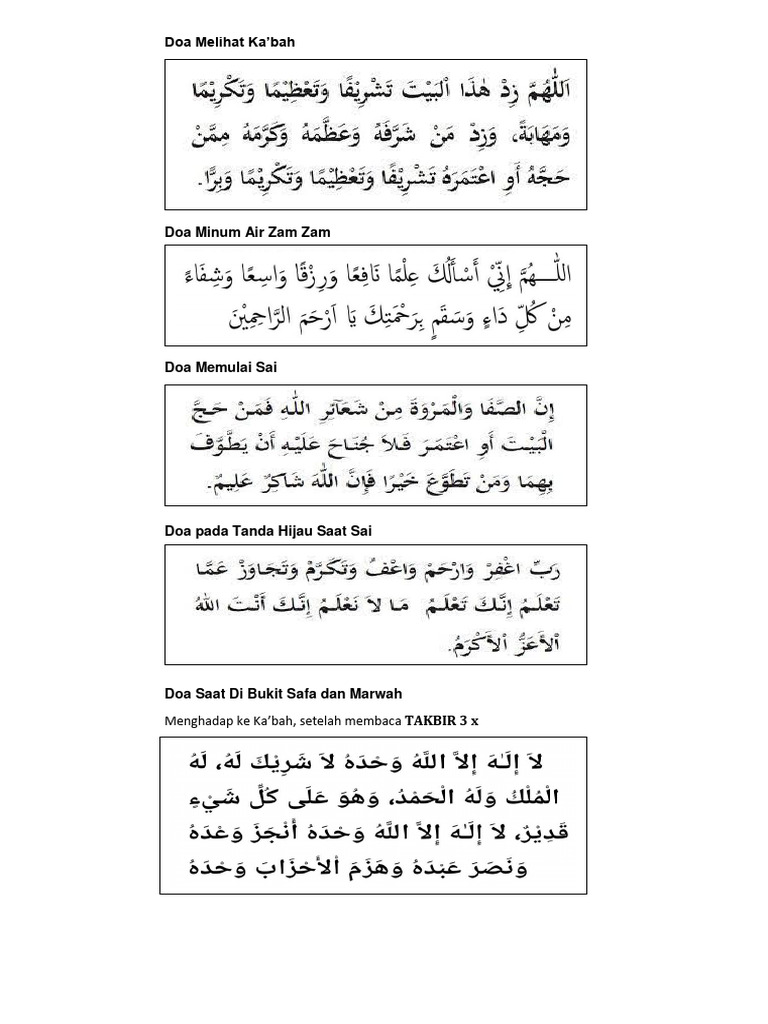 Doa Melihat Ka’bah
اَللّٰهُمَّ زِدْ هٰذَا الْبَيْتَ تَشْرِيْفًا وَتَعْظِيْمًا وَتَكْرِيْمًا
وَمَهَابَةً، وَزِدْ مَنْ شَرَّفَهُ وَعَظَّمَهُ وَكَرَّمَهُ مِمَّنْ
حَجَّهُ أَوِ اعْتَمَرَهُ تَشْرِيْفًا وَتَعْظِيْمًا وَتَكْرِيْمًا وَبِرًّا.
Doa Minum Air Zam Zam
اللّٰـــهُمَّ إِنِّيْ أَسْأَلُكَ عِلْمًا نَافِعًا وَرِزْقًا وَاسِعًا وَشِفَاءً
مِنْ كُلِّ دَاءٍ وَسَقَمٍ بِرَحْمَتِكَ يَا اَرْحَمَ الرَّاحِمِيْنَ
Doa Memulai Sai
إِنَّ الصَّفَا وَالْمَرْوَةَ مِنْ شَعَآئِرِ اللّٰهِ فَمَنْ حَجَّ
الْبَيْتَ أَوِ اعْتَمَرَ فَلاَ جُنَاحَ عَلَيْهِ أَنْ يَطَّوَّفَ
بِهِمَا وَمَنْ تَطَوَّعَ خَيْرًا فَإِنَّ اللّٰهَ شَاكِرٌ عَلِيمٌ.
Doa pada Tanda Hijau Saat Sai
رَبِّ اغْفِرْ وَارْحَمْ وَاعْفُ وَتَكَرَّمْ وَتَجَاوَزْ عَمَّا
تَعْلَمُ إِنَّكَ تَعْلَمُ مَا لاَ نَعْلَمُ إِنَّكَ أَنْتَ اللّٰهُ
اْلأَعَزُّ اْلأَكْرَمُ.
Doa Saat Di Bukit Safa dan Marwah
Menghadap ke Ka’bah, setelah membaca TAKBIR 3 x
لاَ إِلَـٰهَ إِلاَّ اللَّهُ وَحْدَهُ لاَ شَرِيْكَ لَهُ، لَهُ
الْمُلْكُ وَلَهُ الْحَمْدُ، وَهُوَ عَلَى كُلِّ شَيْءٍ
قَدِيْرٌ، لاَ إِلَـٰهَ إِلاَّ اللَّهُ وَحْدَهُ أَنْجَزَ وَعْدَهُ
وَنَصَرَ عَبْدَهُ وَهَزَمَ اْلأَحْزَابَ وَحْدَهُ